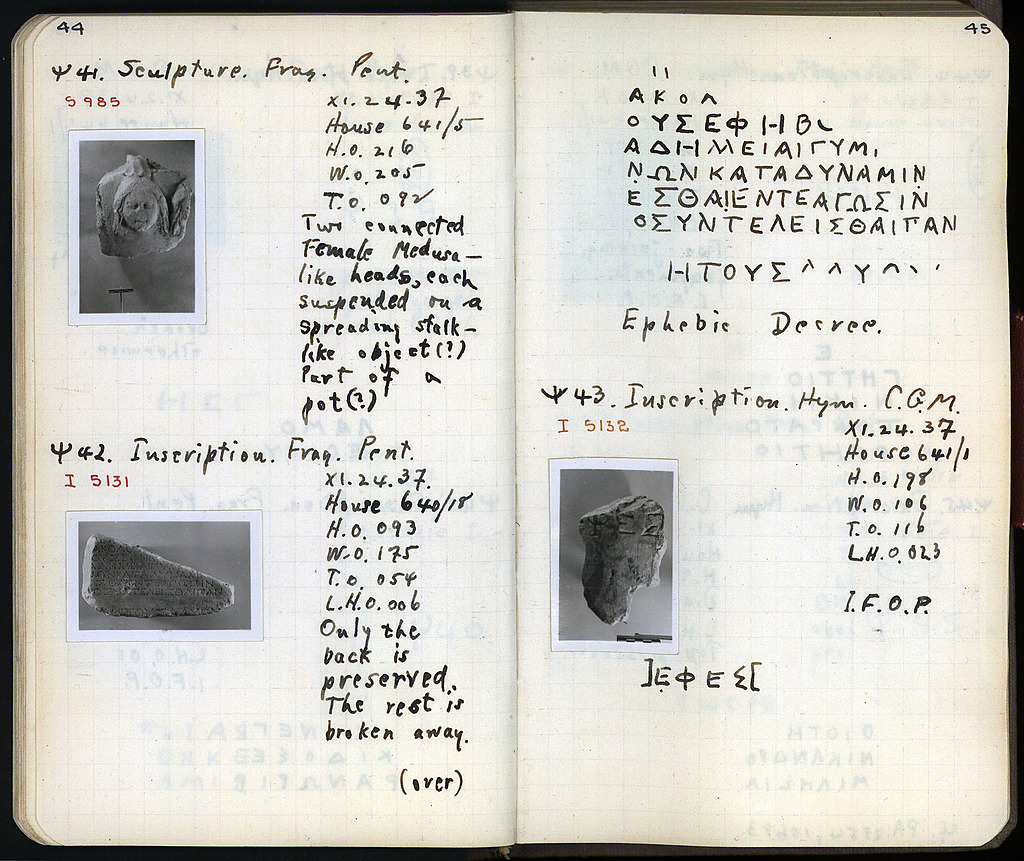 44
Ψ 41. Sculpture. Frag. Pent.
S 985
XI.24.37
House 641/5
H.0.216
W.0.205
T.0.092
Two connected
Female Medusa-
like heads, each
suspended on a
spreading stalk-
like object(?)
Part of a
pot(?)
Ψ42. Inscription. Frag. Pent.
I 5131
XI.24.37.
House 640/18
H.0.093
W.0.175
T.0.054
L.H.0.006
Only the
back is
preserved.
The rest is
broken away.
(over)
45
ΑΚΟΛ
ΟΥΣΕΦΗΒ
ΑΔΗΜΕΙΑΙΓΥΜΙ
ΝΩΝΚΑΤΑΔΥΝΑΜΙΝ
ΕΣΘΑΙΕΝΤΕΑΓΩΣΙΝ
ΟΣΥΝΤΕΛΕΙΣΘΑΙΓΑΝ
ΗΤΟΥΣ
Ephebic Decree.
Ψ 43. Inscription. Hym. C.G.M.
I 5132
XI.24.37
House 641/1
H.0.198
W.0.106
T.0.116
L.H.0.023
I.F.O.P.
]ΕΦΕΣ[